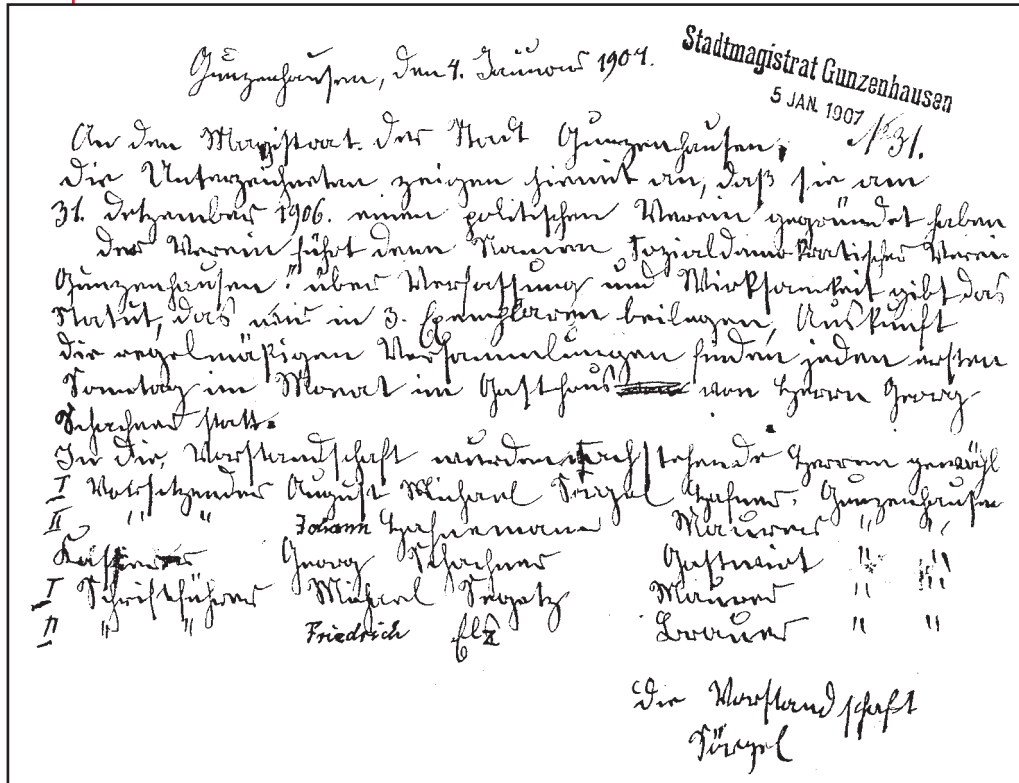 Gunzenhausen, den 4. Januar 1907.
Stadtmagistrat Gunzenhausen
5 JAN. 1907
No 31.
An den Magistrat der Stadt Gunzenhausen,
die Unterzeichneten zeigen hiemit an, daß sie am
31. Detzember 1906. einen politischen Verein gegründet haben
der Verein führt denn Namen Sozialdemokratischer Verein
Gunzenhausen." über Verfassung und Wirksamkeit gibt das
Statut, das wir in 3. Exemplaren beilegen, Auskunft
die regelmäßigen Versammlungen finden jeden ersten
Sonntag im Monat im Gasthaus von Herrn Georg
Schachner statt.
In die Vorstandschaft wurden nachstehende Herren gewähl
I Vorsitzender August Michael Sörgel Hafner. Gunzenhausen
II " " Johann Hahnemann Maurer " "
Kassierer Georg Schachner Gastwirt " "
I Schriftführer Michael Maurer " "
II " " Friedrich Elz Brauer " "
die Vorstandschaft
Sörgel